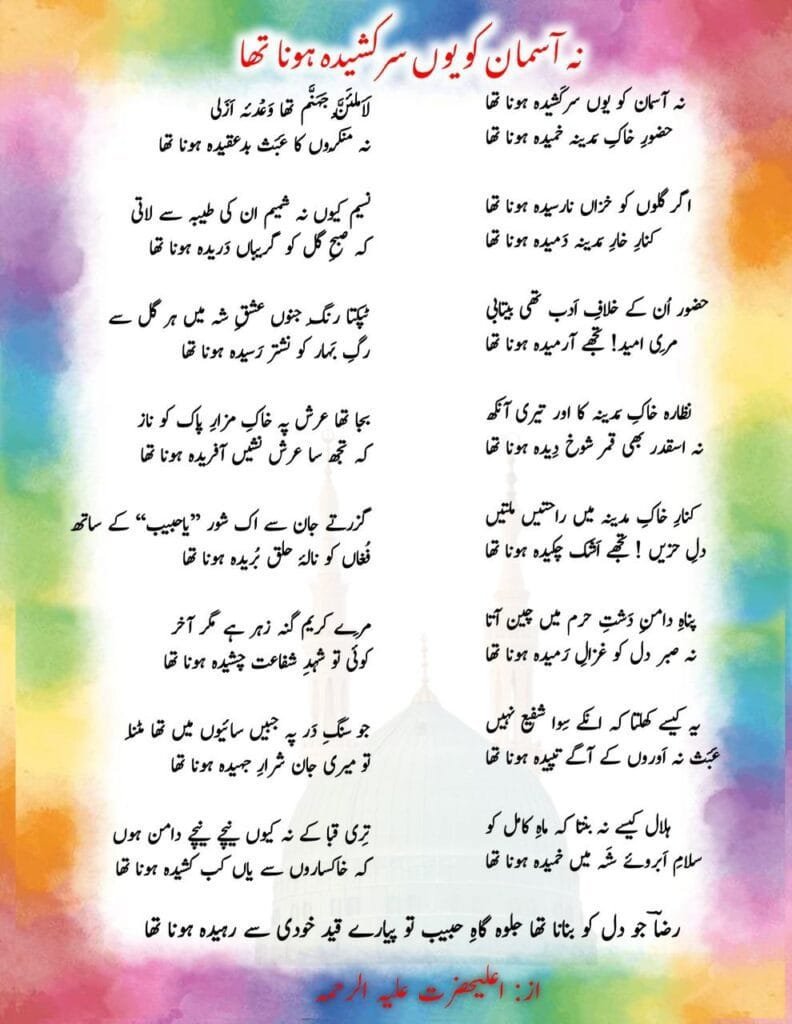 نہ آسمان کو یوں سر کشیدہ ہونا تھا
نہ آسمان کو یوں سرکَشیدہ ہونا تھا
حضورِ خاکِ مدینہ خمیدہ ہونا تھا
اگر گلوں کو خزاں نارسیدہ ہونا تھا
کنارِ خارِ مدینہ دَمیدہ ہونا تھا
حضور اُن کے خلافِ اَدب تھی بیتابی
مِری امید! تجھے آرمیدہ ہونا تھا
نظارہ خاکِ مدینہ کا اور تیری آنکھ
نہ اسقدر بھی قمر شوخ دِیدہ ہونا تھا
کنارِ خاکِ مدینہ میں راحتیں ملتیں
دلِ حزیں! تجھے اَشک چکیدہ ہونا تھا
پناہِ دامنِ دَشتِ حرم میں چین آتا
نہ صبر دل کو غزالِ رَمیدہ ہونا تھا
یہ کیسے کھلتا کہ انکے سِوا شفیع نہیں
عَبَث نہ اَوروں کے آگے تپیدہ ہونا تھا
ہلال کیسے نہ بنتا کہ ماہِ کامل کو
سلامِ اَبروئے شَہ میں خمیدہ ہونا تھا
لَاَمْلَئَنَّ جَہَنَّم تھا وَعْدۂ اَزَلی
نہ منکروں کا عَبَث بدعقیدہ ہونا تھا
نسیم کیوں نہ شمیم ان کی طیبہ سے لاتی
کہ صبحِ گل کو گریباں دَریدہ ہونا تھا
ٹپکتا رنگِ جنوں عشقِ شہ میں ہر گل سے
رگِ بَہار کو نشتر رَسیدہ ہونا تھا
بجا تھا عرش پہ خاکِ مزارِ پاک کو ناز
کہ تجھ سا عرش نشیں آفریدہ ہونا تھا
گزرتے جان سے اک شور ”یاحبیب“ کے ساتھ
فُغاں کو نالۂ حلق بُریدہ ہونا تھا
مرے کریم گنہ زہر ہے مگر آخر
کوئی تو شہدِ شفاعت چشیدہ ہونا تھا
جو سنگِ دَر پہ جبیں سائیوں میں تھا مٹنا
تو میری جان شرارِ جہیدہ ہونا تھا
تِری قبا کے نہ کیوں نیچے نیچے دامن ہوں
کہ خاکساروں سے یاں کب کشیدہ ہونا تھا
رضاؔ جو دل کو بنانا تھا جلوہ گاہِ حبیب تو پیارے قید خودی سے رہیدہ ہونا تھا
از: اعلیحضرت علیہ الرحمہ